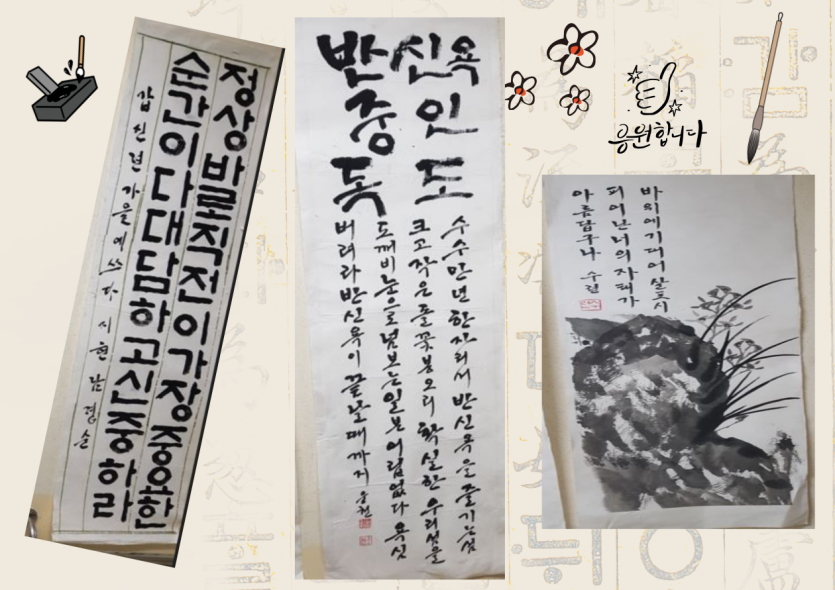 정상바로직전이가장중요한
순간이다대담하고신중하라
갑신년가을에쓰다 시현 남경순
반신욕
중인
독도
수수만년한자리서반신욕을즐기는섬
크고작은돌꽃봉오리 확실한우리섬을
도깨비눈으로넘보는일본어림없다 욕심
버려라반신욕이끝날때까지
응원합니다
바위에기대어살포시
피어난너의자태가
아름답구나